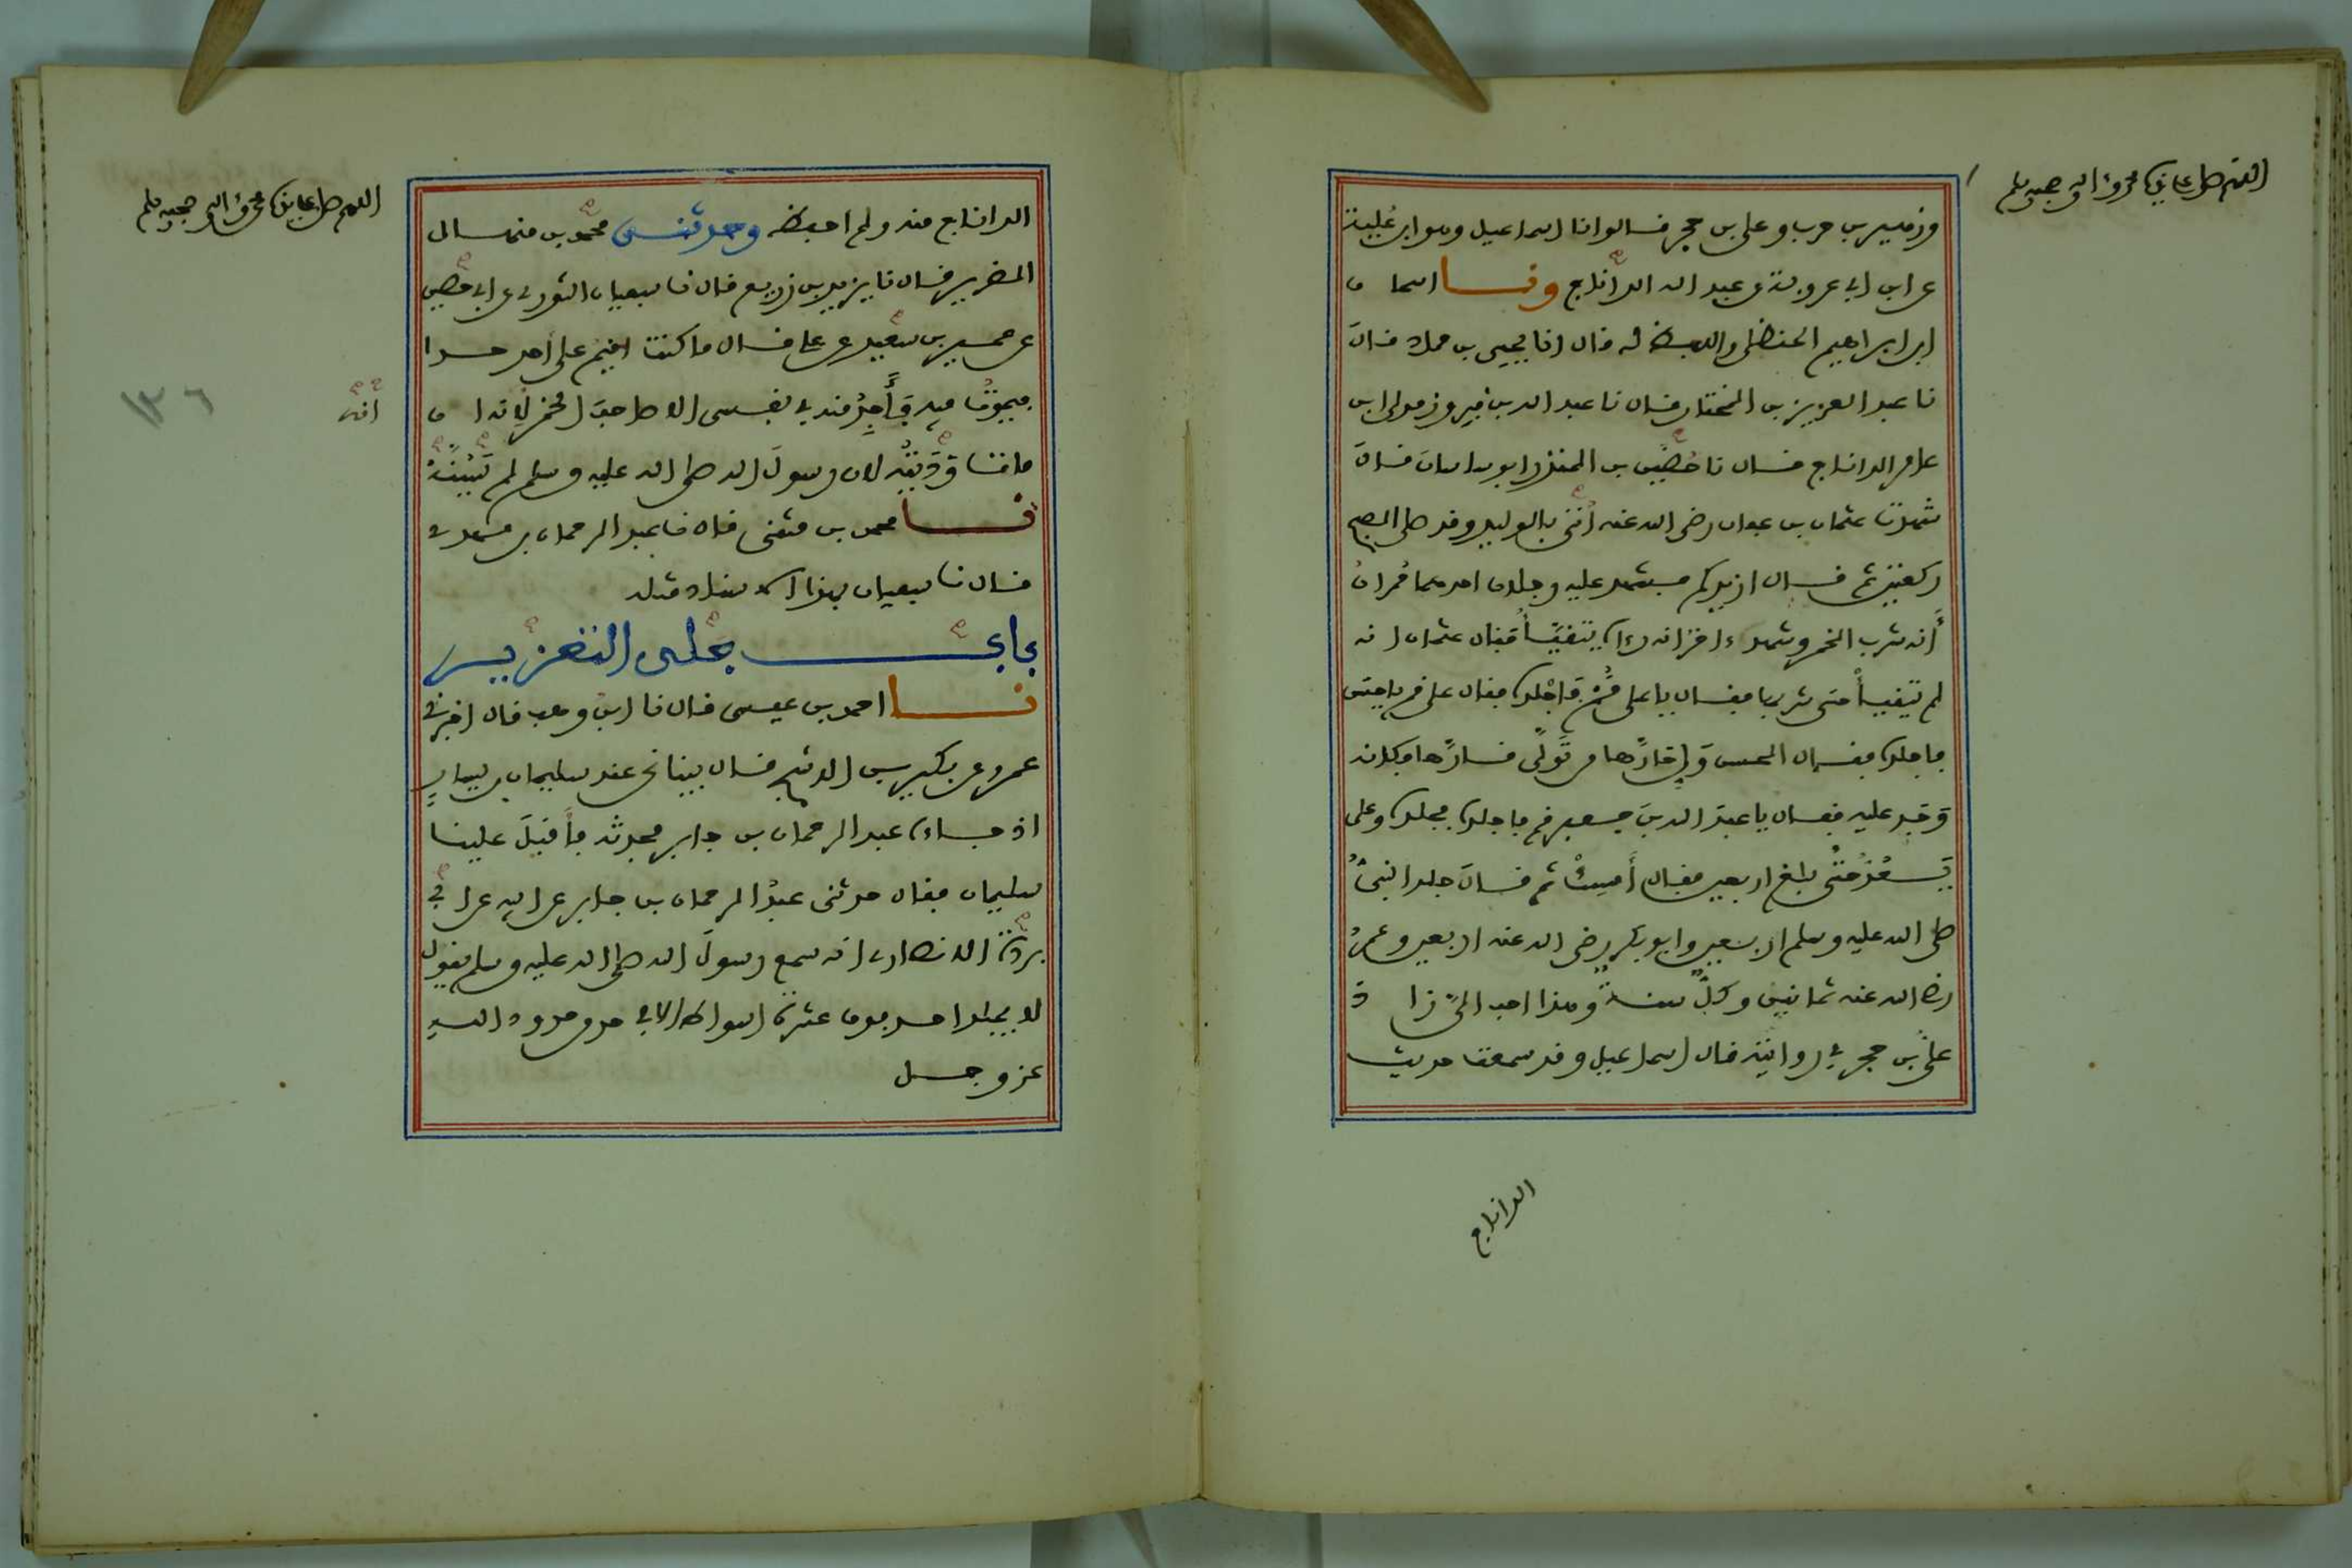 اللهم صل على نبيك محمد وءاله وصحبه وسلم
وزهير بن حرب وعلي بن حجر فالوا نا اسماعيل وهو ابن عُلية
عن ابن ابي عروبة عن عبد الله الداناج ونا اسحا ق
ابن ابراهيم الحنظلي واللفظ له فال انا يحيى بن حماد فال
نا عبد العزيز بن المختار فال نا عبد الله بن فيروز مولى ابن
عامر الداناج فال نا حُضَين بن المنذر ابو ساسان فال
شهدت عثمان بن عفان رضي الله عنه أُتِيَ بالوليد وفد صلى الصبح
ركعتين ثم فال ازيدكم فشهد عليه رجلان احدهما حُمران
أنه شرب الخمر وشهد ءاخر انه رءاه يتفيّأ فقال عثمان انه
لم يتفيأ حتى شربها ففال يا علي فُمْ فَاجْلده ففال علي فم يا حسن
فاجلده ففال الحسن وَلِّ حَارَّها من تَوَلَّى فارَّها فكانه
وَجَد عليه ففال يا عبدَ الله بنَ جعفر فم فاجلده فجلده وعلي
يَعُدُّ حتى بلغ اربعين ففال أَمسِكْ ثم فال جلد النبيُّ
صلى الله عليه وسلم اربعين وابو بكر رضي الله عنه اربعين وعمرُ
رضي الله عنه ثمانين وكلٌّ سنةٌ وهذا احب اليَّ زا د
عليُّ بن حجر في روايته فال اسماعيل وفد سمعت حديث
الداناج
اللهم صل على نبيك محمد وءاله وصحبه وسلم
الداناج منه ولم احفظه وحدثني محمد بن منهال
الضرير فال نا يزيد بن زريع فال نا سفيان الثوري عن ابي حصين
عن عمير بن سعيد عن علي فال ما كنت افيم على احد حدا
فيموتُ فيه فَأَجِدُ منه في نفسي الا صاحبَ الخمر لأنه ا ن
انه
١٣٦
مات وَدَيْتُه لان رسولَ الله صلى الله عليه وسلم لم يَسُنَّهُ
نا محمد بن مثنى فال نا عبد الرحمان بن مهدي
فال نا سفيان بهذا الاسناد مثله
باب جلد التعزير
نا احمد بن عيسى فال نا ابن وهب فال اخبرني
عمرو عن بكير بن الاشج فال بينا نحن عند سليمان بن يسارٍ
اذ جاءه عبد الرحمان بن جابر فحدثه فأفبلَ علينا
سليمان ففال حدثني عبدُ الرحمان بن جابر عن ابيه عن ابي
بردة الانصاري انه سمع رسولَ الله صلى الله عليه وسلم يفول
لا يجلد احد فوق عشرة اسواط الا في حد من حدود الله
عز وجل